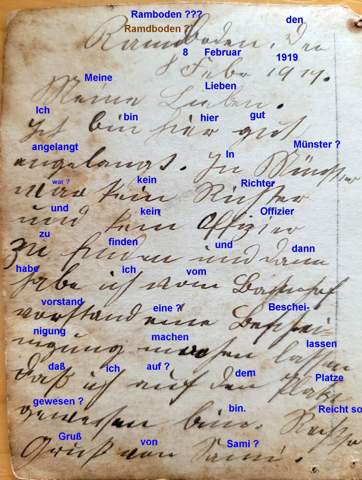 Ramboden ??? den
Ramdboden ?
den
8 Februar 1919
8 Febr 1919.
Meine Lieben
Meine Lieben.
Ich bin hier gut
Ich bin hier gut
angelangt In Münster ?
angelangt. In Münster
war ? kein Richter
war kein Richter
und kein Offizier
und kein Offizier
zu finden und dann
zu finden und dann
habe ich vom
habe ich vom Bahnhof
vorstand eine ? Beschei-
vorstand eine Beschei-
nigung machen lassen
nigung machen lassen
daß ich auf ? dem Platze
daß ich auf dem Platze
gewesen ? bin. Reicht so
gewesen bin.
Gruß von Sami ?
Gruß von